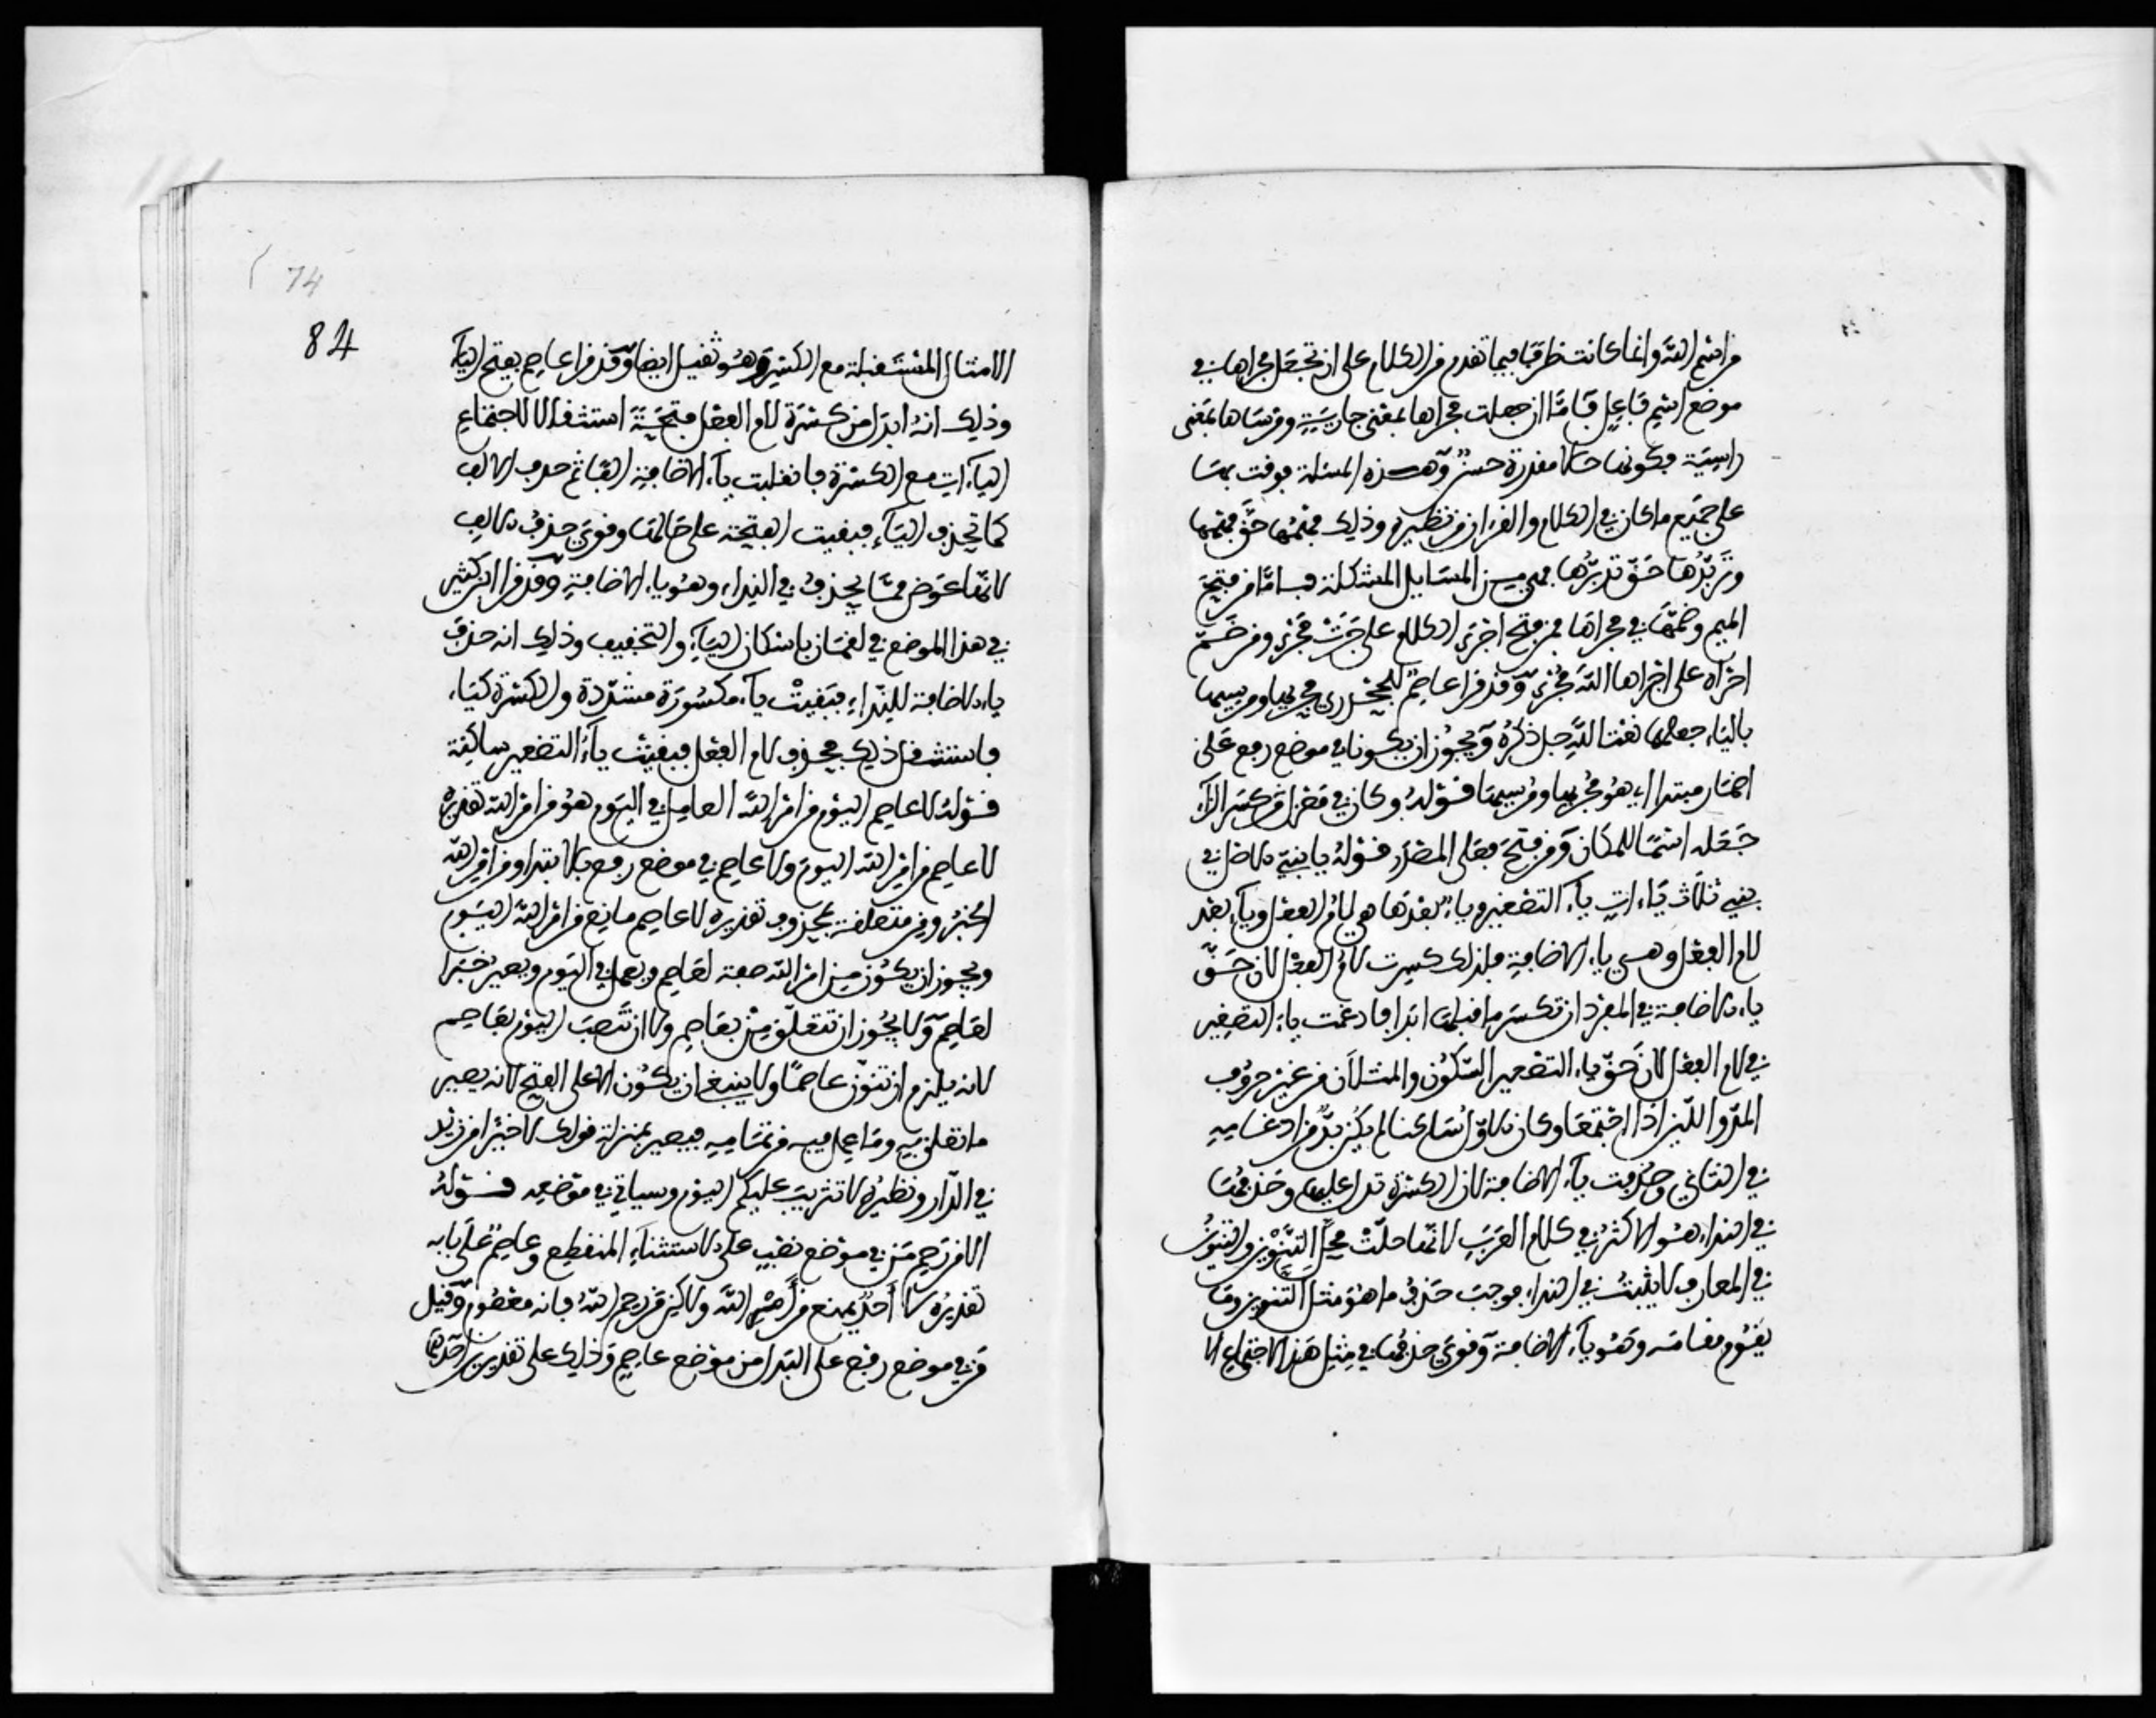 من اسم الله وانما كانت ظرفا فيما تقدم من الكلام على ان تجعل مجراها في
موضع اسم فاعل فاما ان جعلت مجراها بمعنى جارية ومرساها بمعنى
راسية فكونها حالا مقدرة حسن وهذه المسئلة يوقف بها
على جميع ما كان في الكلام والقرءان من نظيره وذلك لمن فهمها حق فهمها
وتدبرها حق تدبرها فهي من المسايل المشكلة فاما من فتح
الميم وضمها في مجراها فمن فتح اجرى الكلام على جرت مجرى ومن ضم
اجراه على اجراها الله مجرى وقد قرا عاصم الجحدري مجريها ومرسيها
بالياء جعلهما نعتا لله جل ذكره ويجوز ان يكونا في موضع رفع على
اضمار مبتدا اي هو مجريها ومرسيها قوله وكان في معزل من كسر الزاء
جعله اسما للمكان ومن فتح فعلى المصدر قوله يا بني الاصل في
بني ثلاث ياءات ياء التصغير وياء بعدها هي لام الفعل وياء بعد
لام الفعل وهي ياء الاضافة فلذلك كسرت لام الفعل لان حق
ياء الاضافة في المفرد ان تكسر ما قبلها ابدا فادغمت ياء التصغير
في لام الفعل لان حق ياء التصغير السكون والمثلان من غير حروف
المد واللين اذا اجتمعا وكان الاول ساكنا لم يكن بد من ادغامه
في الثاني وحذفت ياء الاضافة لان الكسرة تدل عليها وحذفها
في النداء هو الاكثر في كلام العرب لانها حلت محل التنوين والتنوين
في المعارف لا يثبت في النداء فوجب حذف ما هو مثل التنوين وما
يقوم مقامه وهو ياء الاضافة وقوي حذفها في مثل هذا لاجتماع الا
74
84
الامثال المستثقلة مع الكسر وهو ثقيل ايضا وقد قرا عاصم بفتح الياء
وذلك انه ابدل من كسرة لام الفعل فتحة استثقالا لاجتماع
الياءات مع الكسرة فانقلبت ياء الاضافة الفا ثم حذف الالف
كما تحذف الياء فبقيت الفتحة على حالها وقوي حذف الالف
لانها عوض مما يحذف في النداء وهو ياء الاضافة وقد قرا ابن كثير
في هذا الموضع في لقمان باسكان الياء والتخفيف وذلك انه حذف
ياء الاضافة للنداء فبقيت ياء مكسورة مشددة والكسرة كياء
فاستثقل ذلك فحذف لام الفعل فبقيت ياء التصغير ساكنة
قوله لا عاصم اليوم من امر الله العامل في اليوم هو من امر الله تقديره
لا عاصم من امر الله اليوم ولا عاصم في موضع رفع بالابتداء ومن امر الله
الخبر ومن متعلقة بمحذوف تقديره لا عاصم مانع من امر الله اليوم
ويجوز ان يكون من امر الله صفة لعاصم ويعمل في اليوم ويصير خبرا
لعاصم ولا يجوز ان تتعلق من بعاصم ولا ان تنصب اليوم بعاصم
لانه يلزم ان تنون عاصما ولا ينبغي ان يكون الا على الفتح لانه يصير
ما تعلق به وما عمل فيه من تمامه فيصير بمنزلة قولك لا خيرا من زيد
في الدار ونظيره لا تثريب عليكم اليوم وسياتي في موضعه قوله
الا من رحم من في موضع نصب على الاستثناء المنقطع وعاصم على بابه
تقديره لا احد يمنع من امر الله ولاكن من رحم الله فانه معصوم وقيل
من في موضع رفع على البدل من موضع عاصم وذلك على تقديرين احدهما